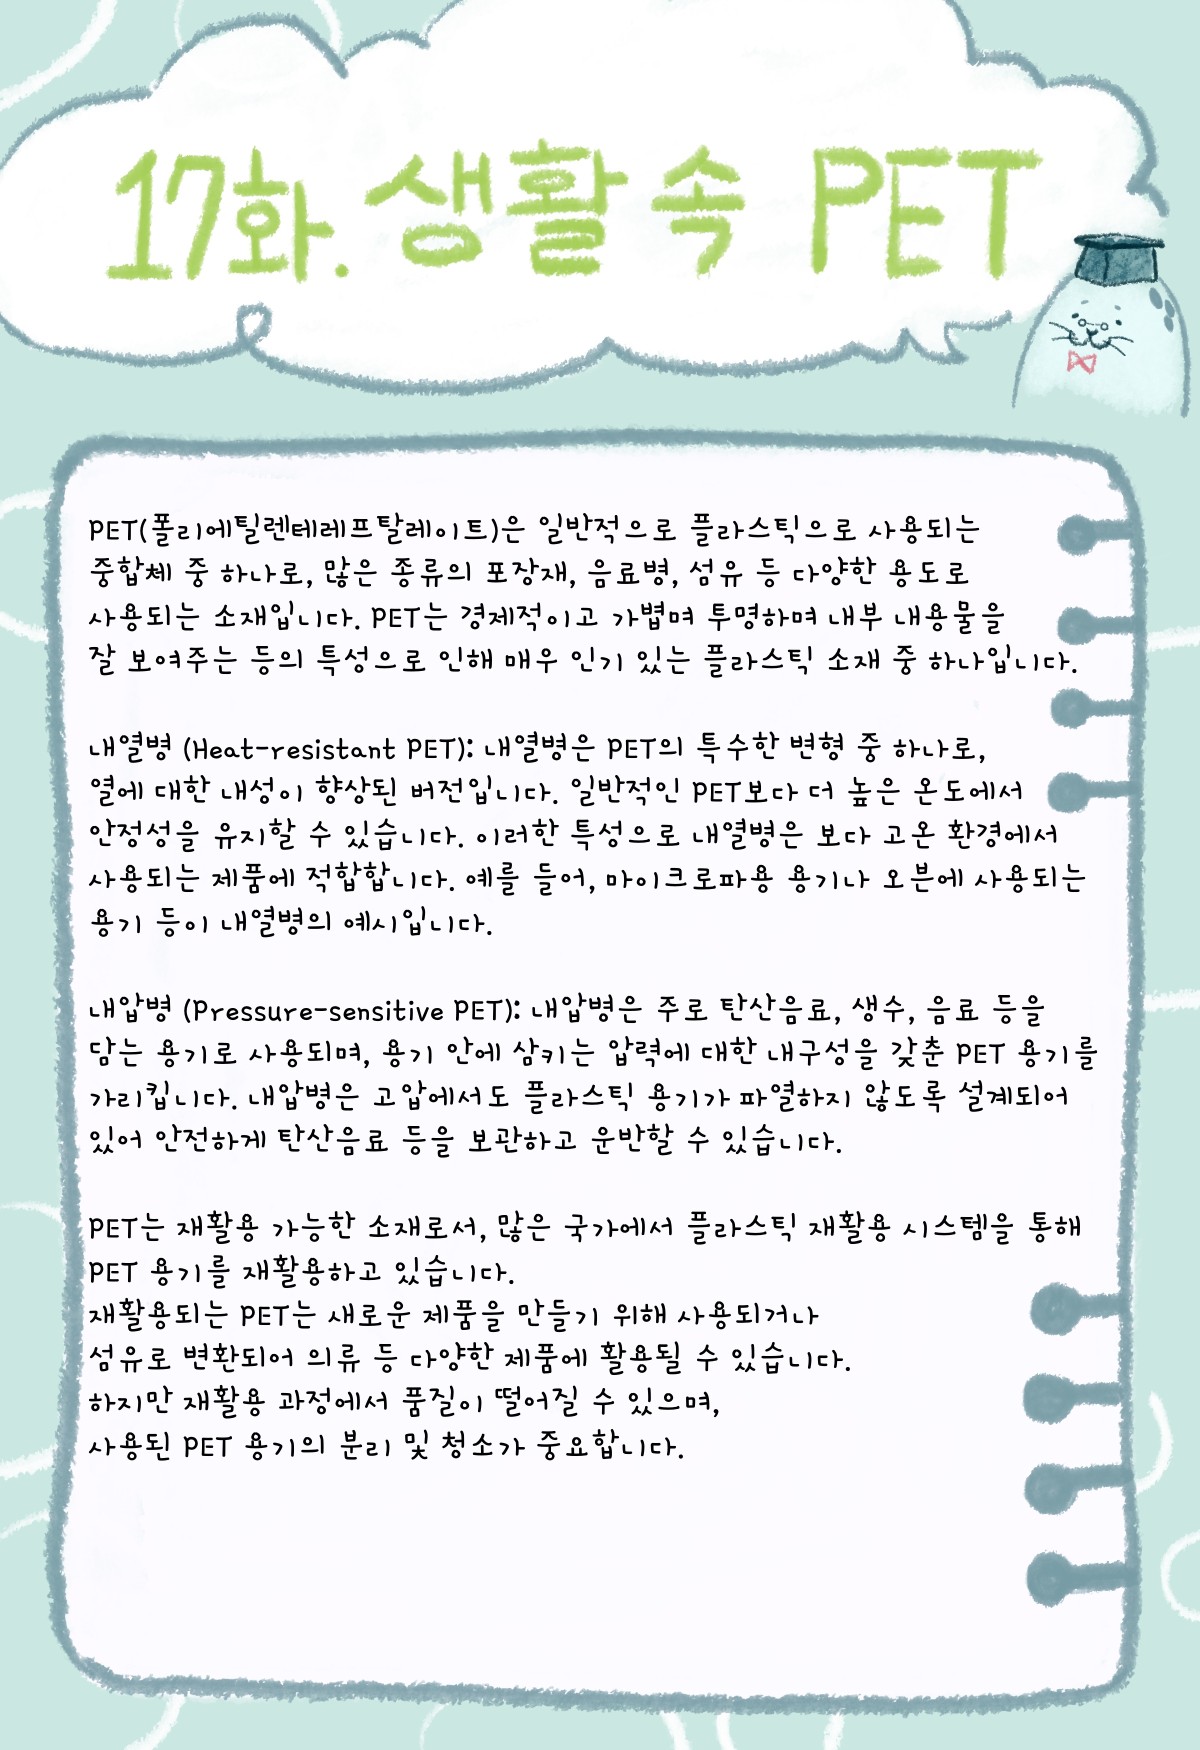 17화. 생활 속 PET
PET(폴리에틸렌테레프탈레이트)은 일반적으로 플라스틱으로 사용되는
중합체 중 하나로, 많은 종류의 포장재, 음료병, 섬유 등 다양한 용도로
사용되는 소재입니다. PET는 경제적이고 가볍며 투명하며 내부 내용물을
잘 보여주는 등의 특성으로 인해 매우 인기 있는 플라스틱 소재 중 하나입니다.
내열병 (Heat-resistant PET): 내열병은 PET의 특수한 변형 중 하나로,
열에 대한 내성이 향상된 버전입니다. 일반적인 PET보다 더 높은 온도에서
안정성을 유지할 수 있습니다. 이러한 특성으로 내열병은 보다 고온 환경에서
사용되는 제품에 적합합니다. 예를 들어, 마이크로파용 용기나 오븐에 사용되는
용기 등이 내열병의 예시입니다.
내압병 (Pressure-sensitive PET): 내압병은 주로 탄산음료, 생수, 음료 등을
담는 용기로 사용되며, 용기 안에 삼키는 압력에 대한 내구성을 갖춘 PET 용기를
가리킵니다. 내압병은 고압에서도 플라스틱 용기가 파열하지 않도록 설계되어
있어 안전하게 탄산음료 등을 보관하고 운반할 수 있습니다.
PET는 재활용 가능한 소재로서, 많은 국가에서 플라스틱 재활용 시스템을 통해
PET 용기를 재활용하고 있습니다.
재활용되는 PET는 새로운 제품을 만들기 위해 사용되거나
섬유로 변환되어 의류 등 다양한 제품에 활용될 수 있습니다.
하지만 재활용 과정에서 품질이 떨어질 수 있으며,
사용된 PET 용기의 분리 및 청소가 중요합니다.